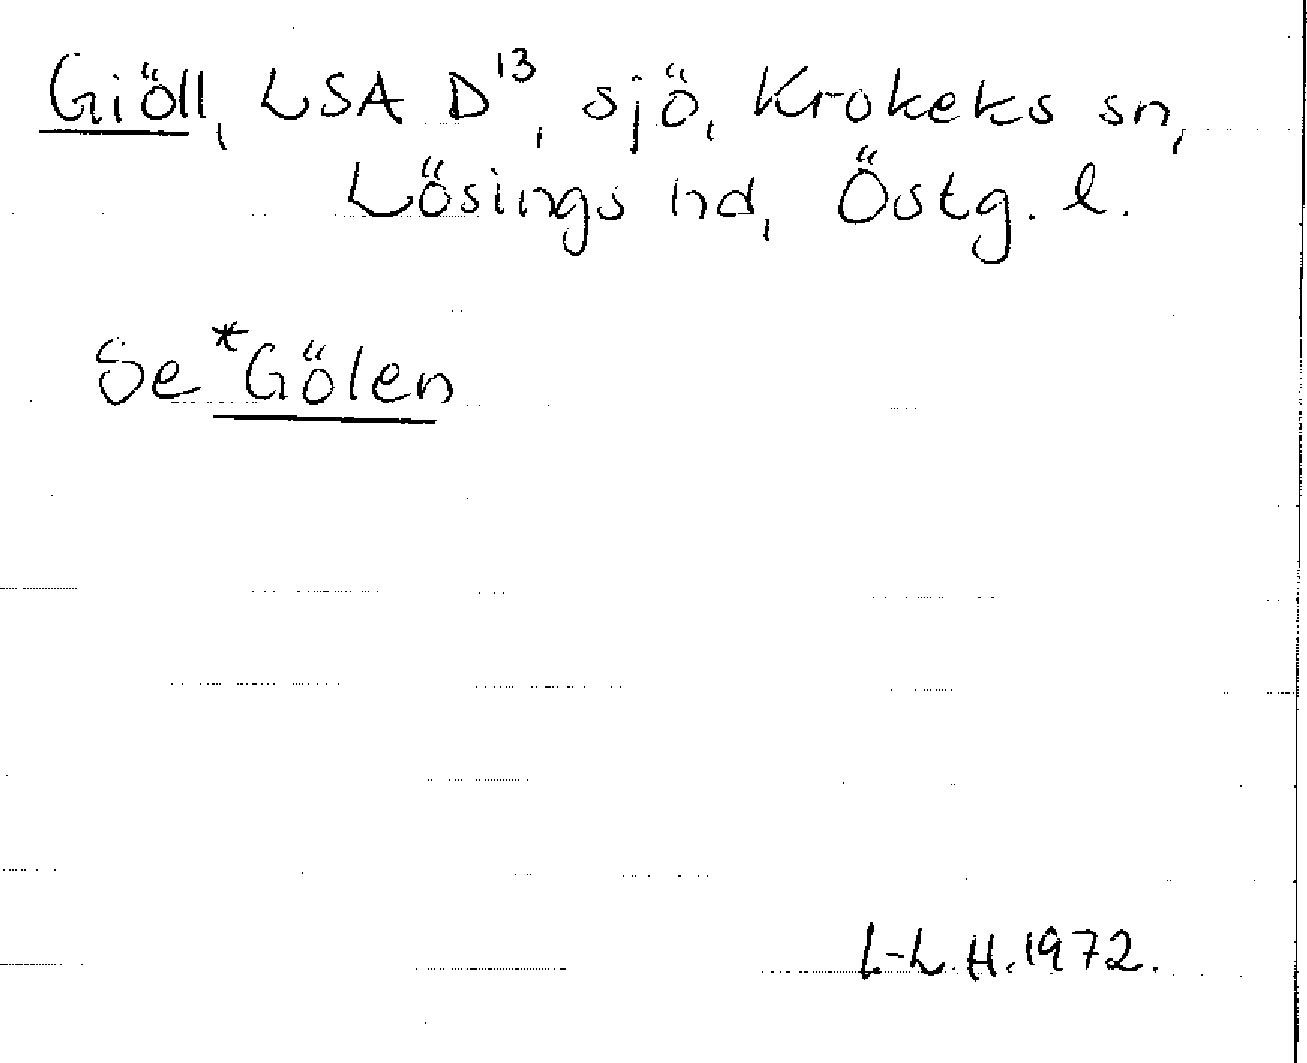 Giöll, LSA D¹³, sjö, Krokeks sn,
Lösings hd, Östg. l.
Se *Gölen
L-L.H.1972.